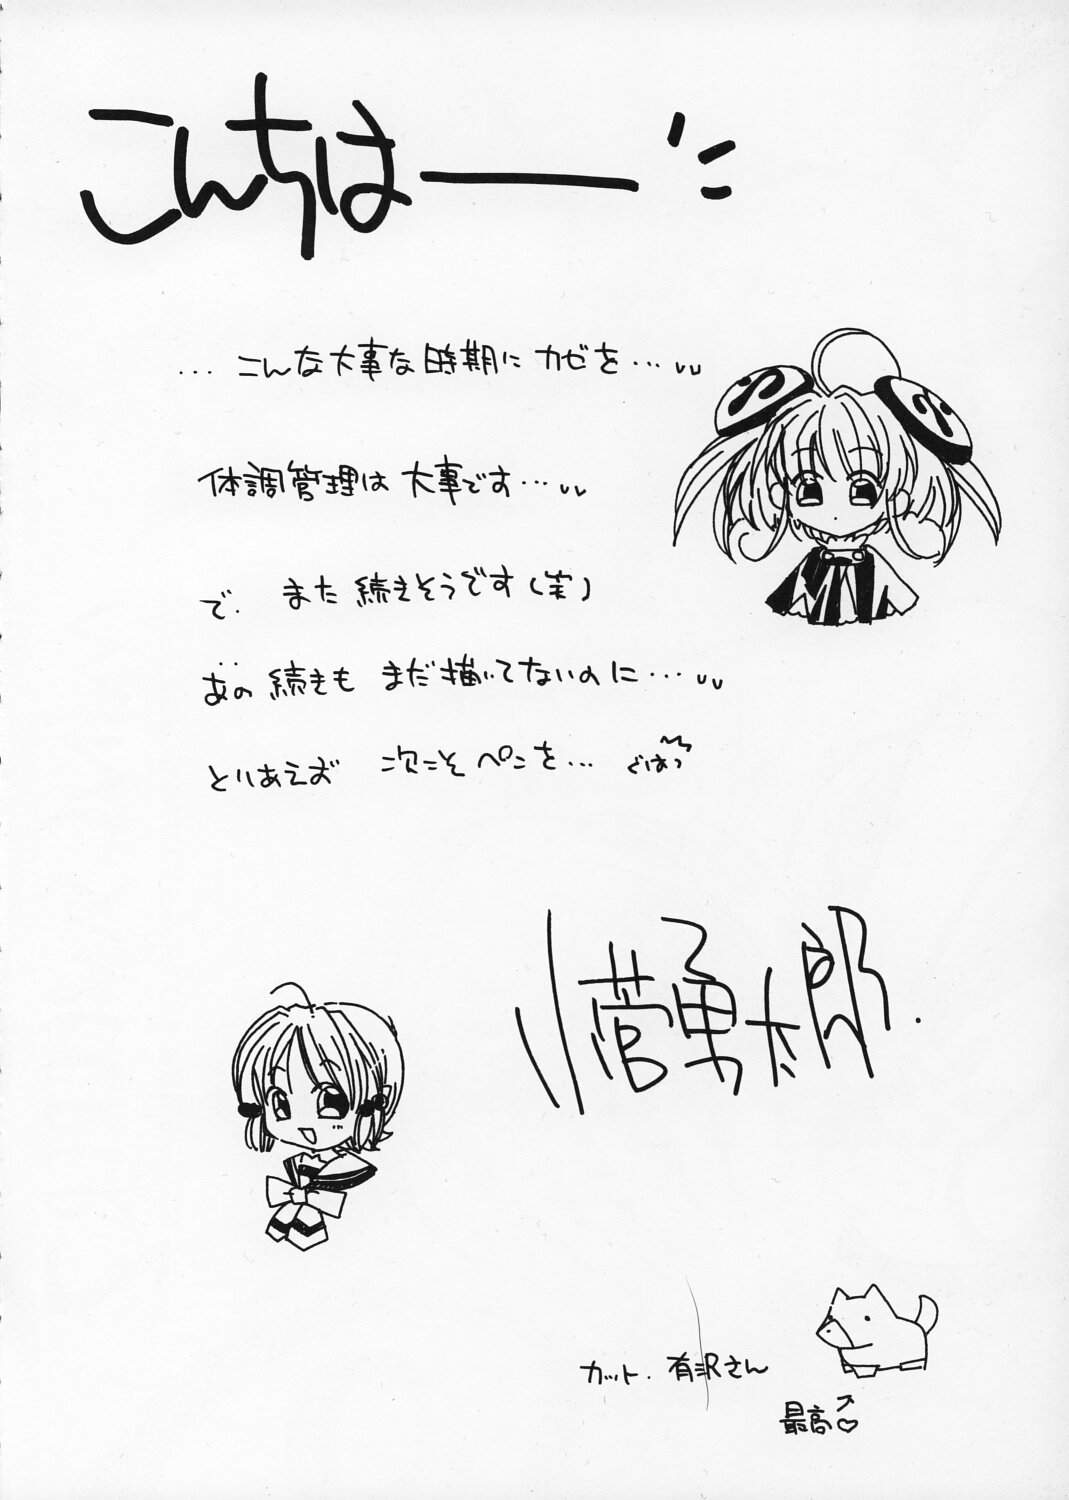 こんちはー
…こんな大事な時期にカゼを…
体調管理は大事です…
で. また続きそうです(笑)
あの続きもまだ描いてないのに…
とりあえず 次こそペンを… ぐはっ
小菅勇太郎.
カット. 有沢さん
最高♡